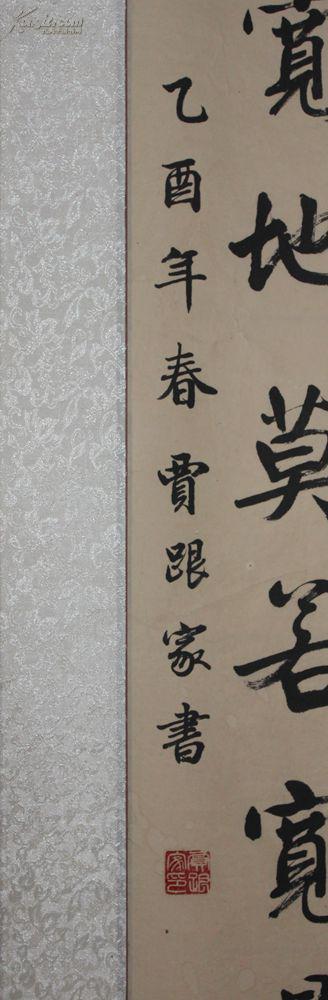 寬地莫若寬
乙酉年春賈跟家書
賈跟家印